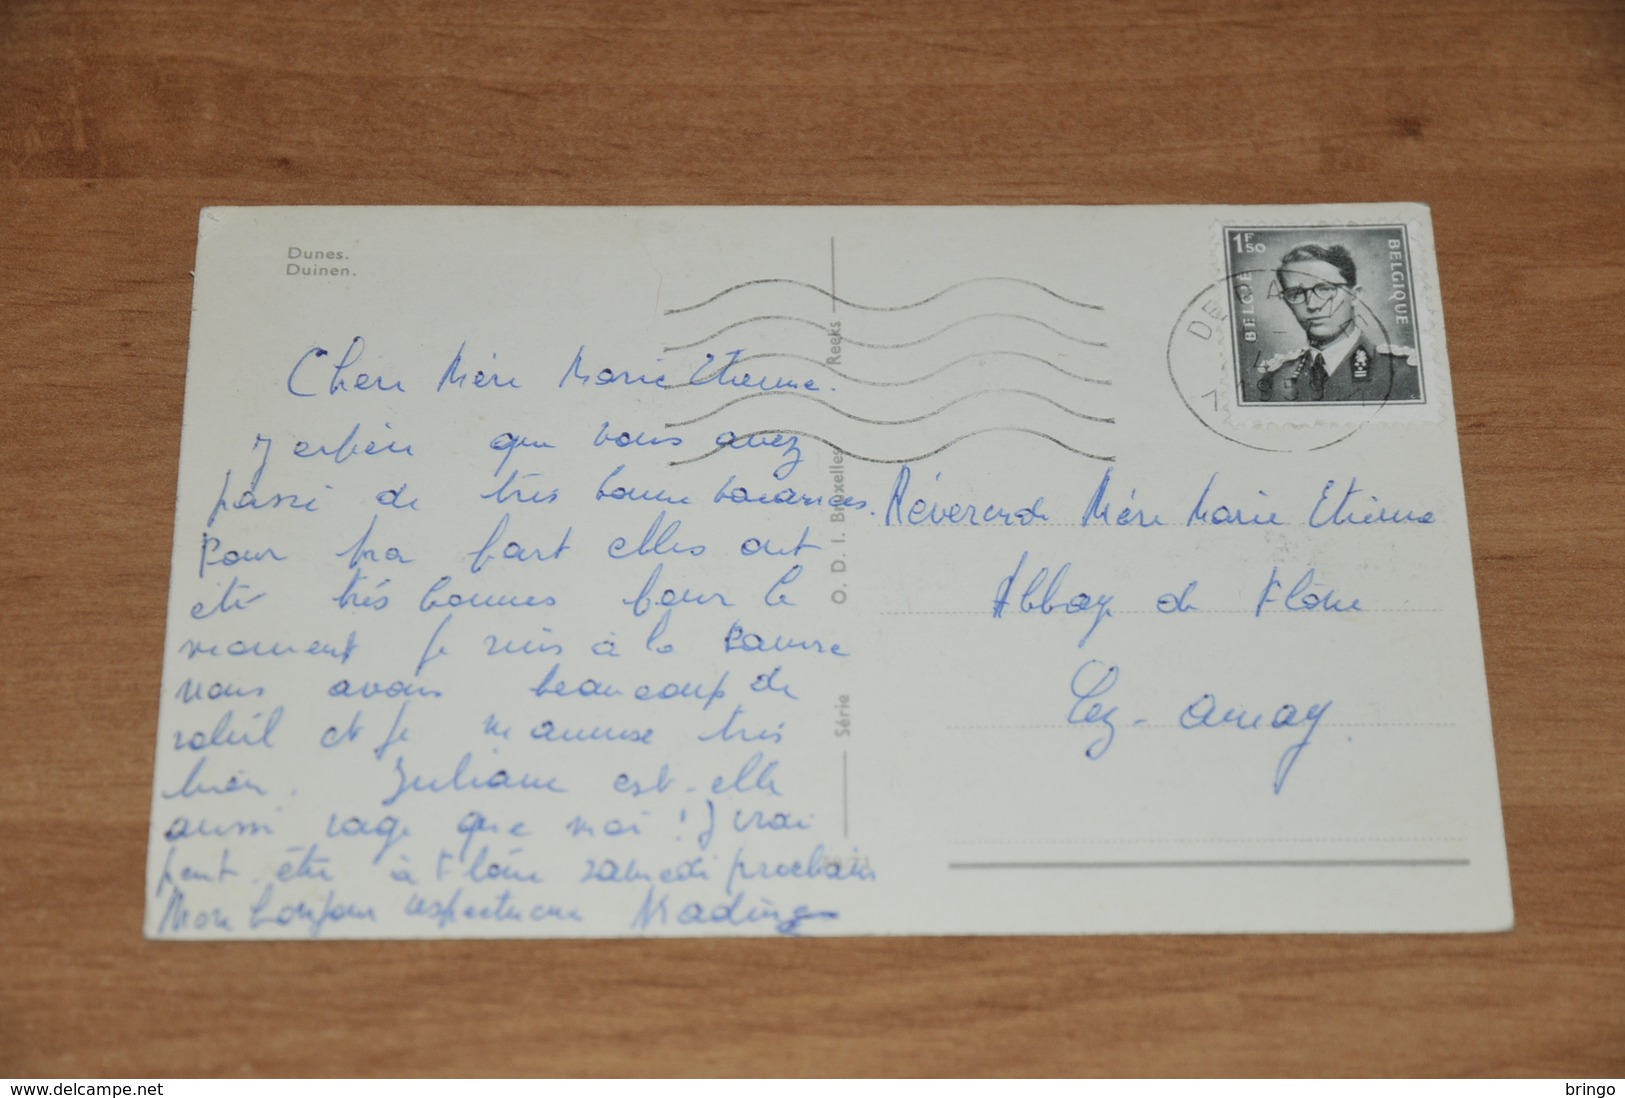 Dunes.
Duinen.
Chère Mère Marie Etienne.
J'espère que vous avez
passé de très bonne vacances.
Pour ma part elles ont
été très bonnes pour le
moment je suis à la Panne
nous avons beaucoup de
soleil et je m'amuse très
bien. Juliane est-elle
aussi sage que moi ! J'irai
peut-être à Flône samedi prochain
Mon bonjour respectueux Nadine
O. D. I. Bruxelles
Série
Reeks
1F50
BELGIE
BELGIQUE
DE PA
Révérende Mère Marie Etienne
Abbaye de Flône
Lez-Amay.
delcampe.net
bringo